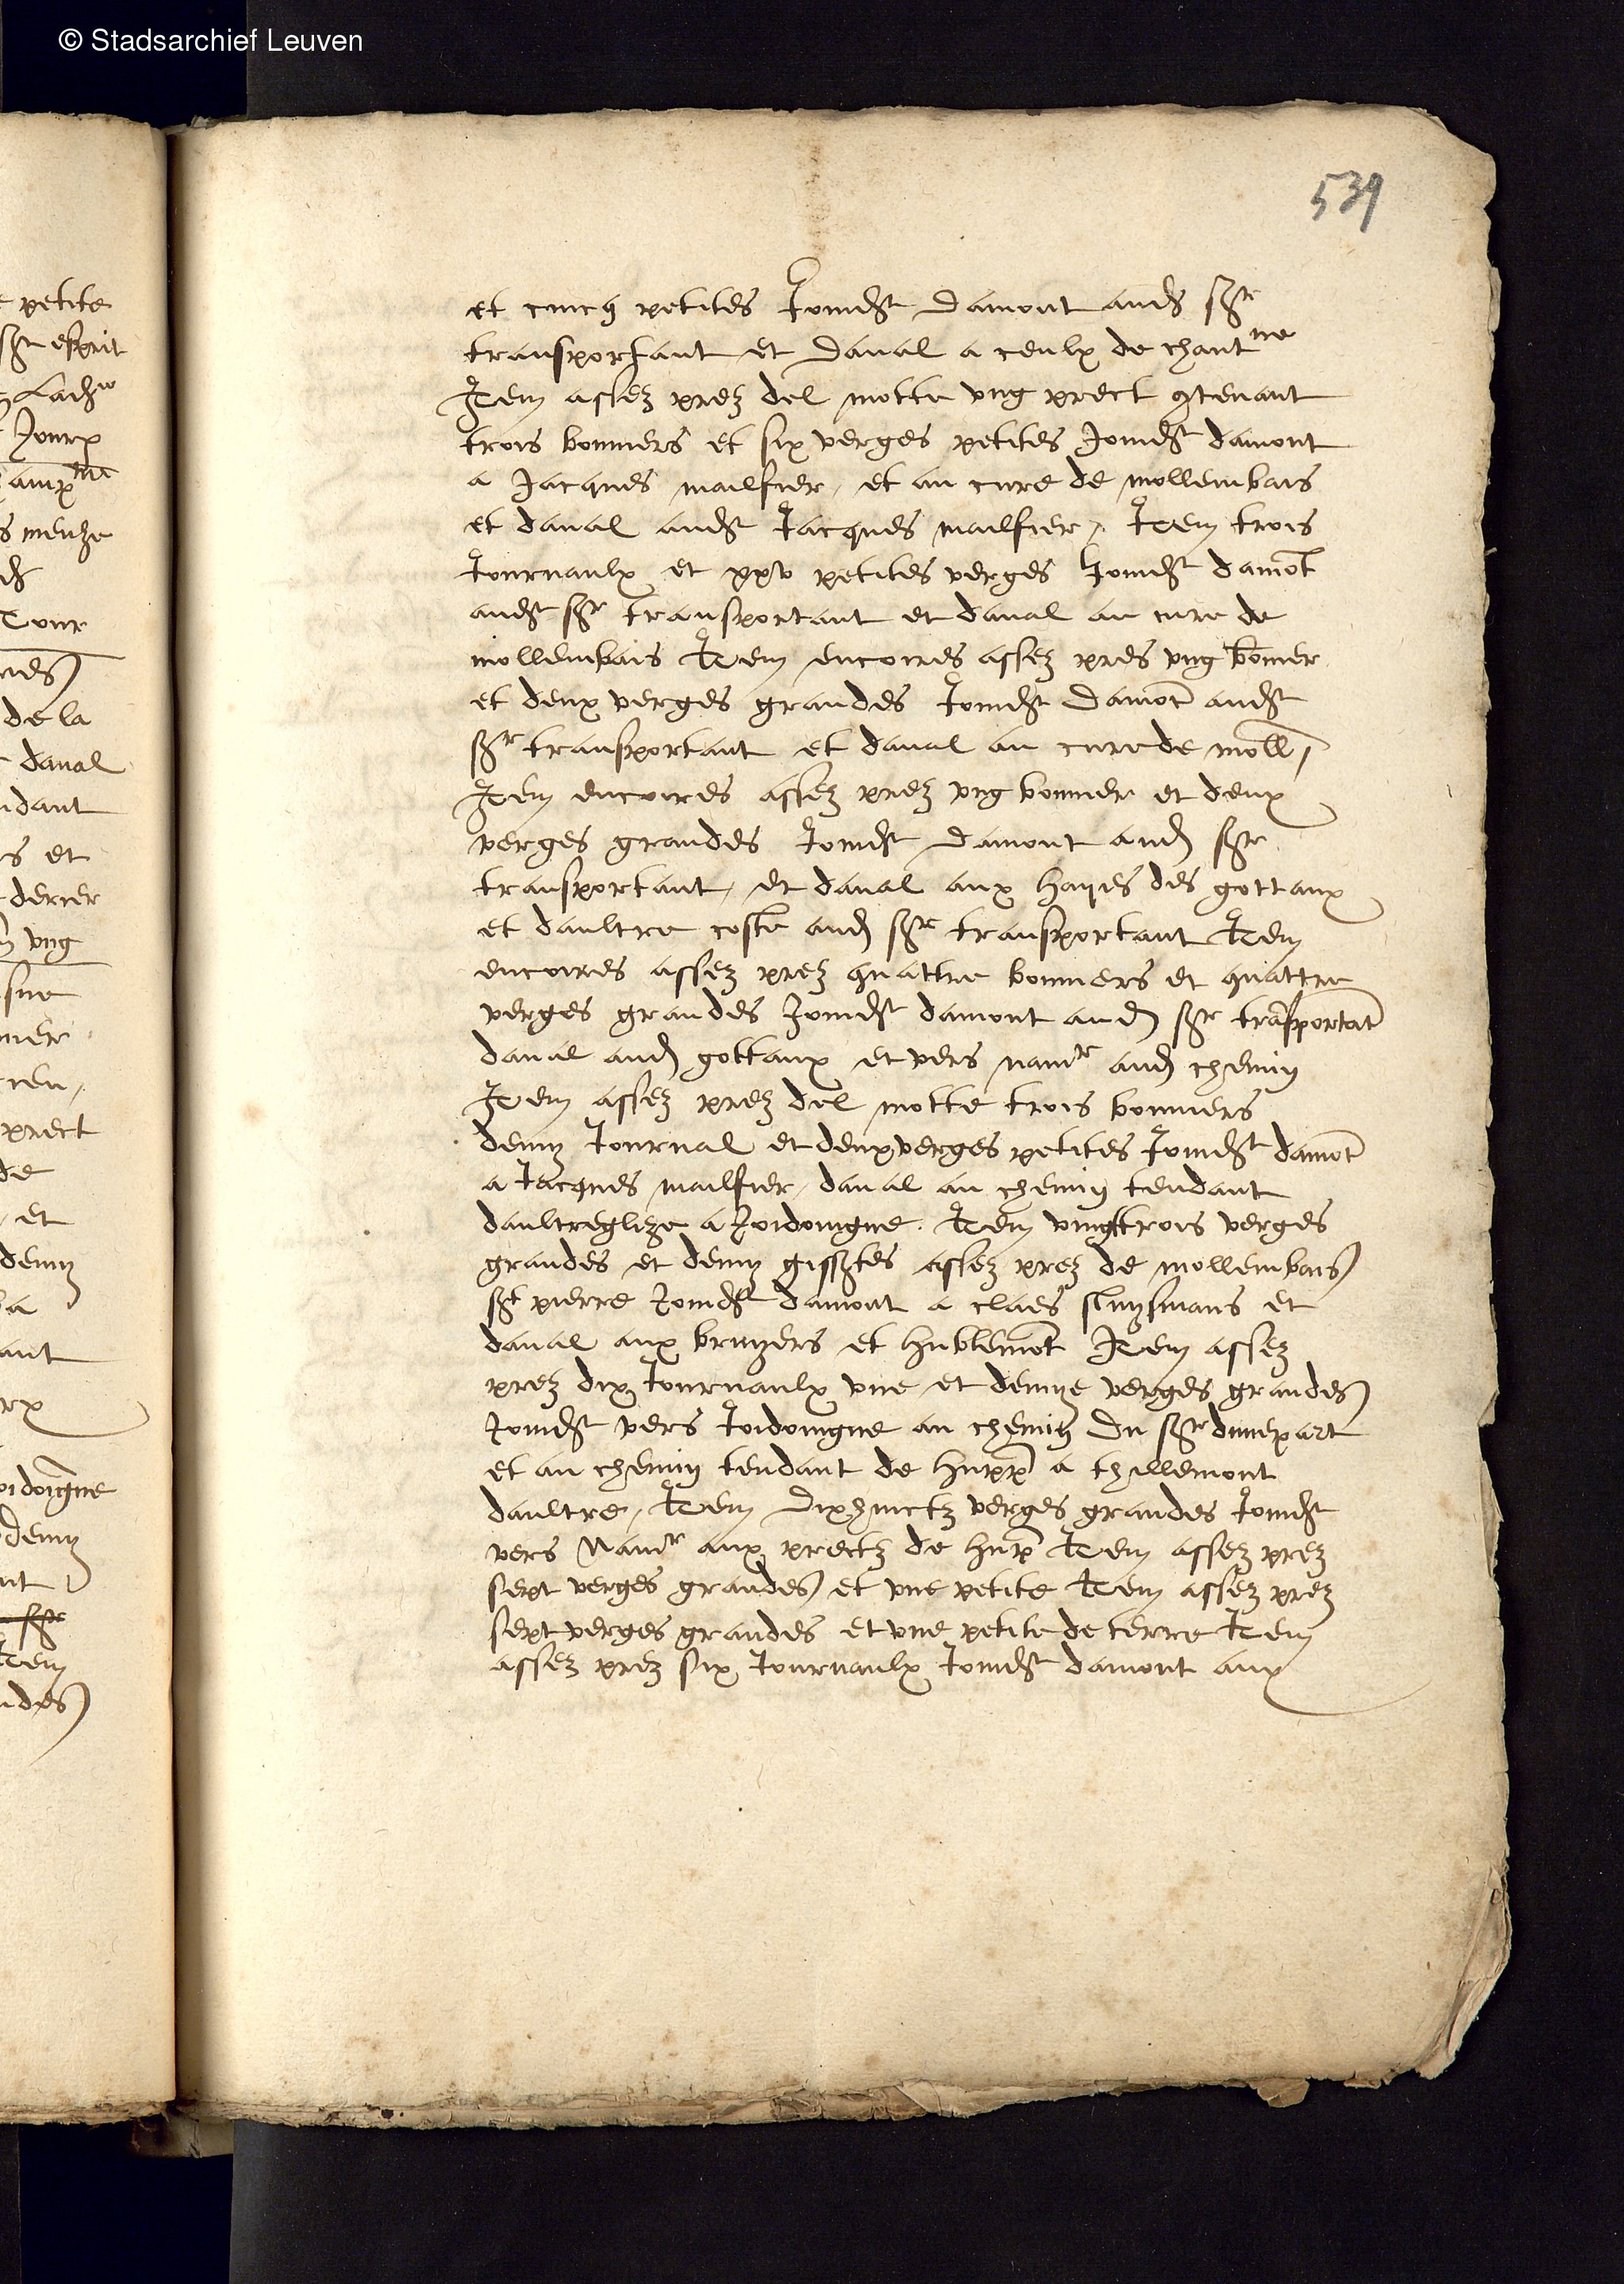 © Stadsarchief Leuven
539
et cincq petites Joindt damont aud sr
transportant et daval a ceulx de chantne
Item assez prez del motte ung prect 9tenant
trois bonniers et six verges petites Joindt damont
a Jacques mailfier, et au cure de mollembais
et daval audt Jacques mailfier, Item trois
Journaulx et xxv petites verges Joindt damot
audt sr transportant et daval au cure de
mollembais Item encoires assez pres ung bonier
et deux verges grandes Joindt damot audt
sr transportant et daval au cure de moll
Item encoires assez prez ung bonnier et deux
verges grandes Joindt damont aud sr
transportant, et daval aux hayes des gottaux
et daultre coste aud sr transportant Item
encoires assez prez quattre bonniers et quattre
verges grandes Joindt damont aud sr trasportat
daval aud gottaux et vers namr aud chemin
Item assez prez del motte trois bonniers
demy Journal et deux verges petites Joindt damot
a Jacques mailfier, daval au chemin tendant
daultreglize a Joidoingne. Item vingttrois verges
grandes et demy gissantes assez prez de mollembais
st pierre Joindt damont a claes sluysmans et
daval aux bruyers et hublemot Item assez
prez dix Journaulx une et demye verges grandes
Joindt vers Joidoingne au chemin du sr dunepart
et au chemin tendant de hupp a thillemont
daultre, Item dixhuictz verges grandes Joindt
vers Namr aux prectz de hup Item assez prez
sept verges grandes et une petite Item assez prez
sept verges grandes et une petite de terre Item
assez prez six Journaulx Joindt damont aux